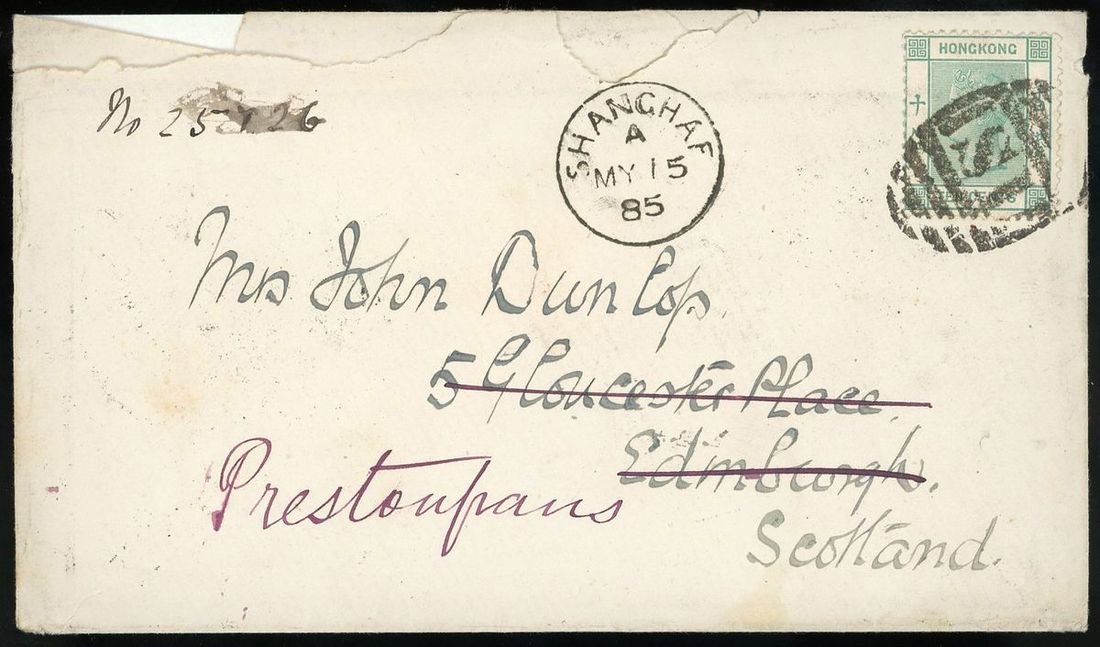 HONGKONG
十
No 25 & 26
SHANGHAE
A
MY 15
85
Mrs John Dunlop.
5 Gloucester Place.
Edinburgh.
Prestonpans
Scotland.